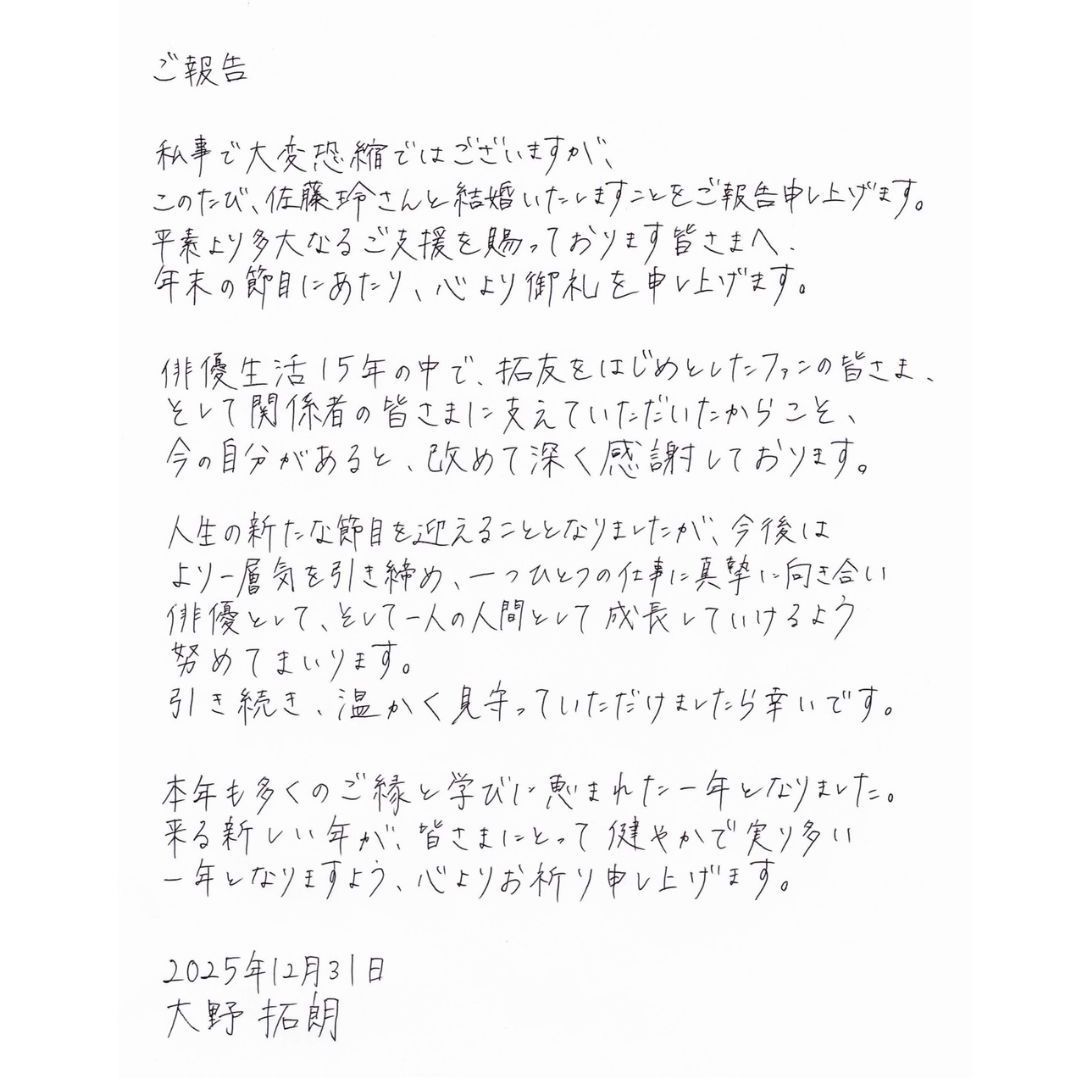 ご報告
私事で大変恐縮ではございますが、
このたび、佐藤玲さんと結婚いたしますことをご報告申し上げます。
平素より多大なるご支援を賜っております皆さまへ、
年末の節目にあたり、心より御礼を申し上げます。
俳優生活15年の中で、拓友をはじめとしたファンの皆さま、
そして関係者の皆さまに支えていただいたからこそ、
今の自分があると、改めて深く感謝しております。
人生の新たな節目を迎えることとなりましたが、今後は
より一層気を引き締め、一つひとつの仕事に真摯に向き合い
俳優として、そして一人の人間として成長していけるよう
努めてまいります。
引き続き、温かく見守っていただけましたら幸いです。
本年も多くのご縁と学びに恵まれた一年となりました。
来る新しい年が、皆さまにとって健やかで実り多い
一年となりますよう、心よりお祈り申し上げます。
2025年12月31日
大野拓朗